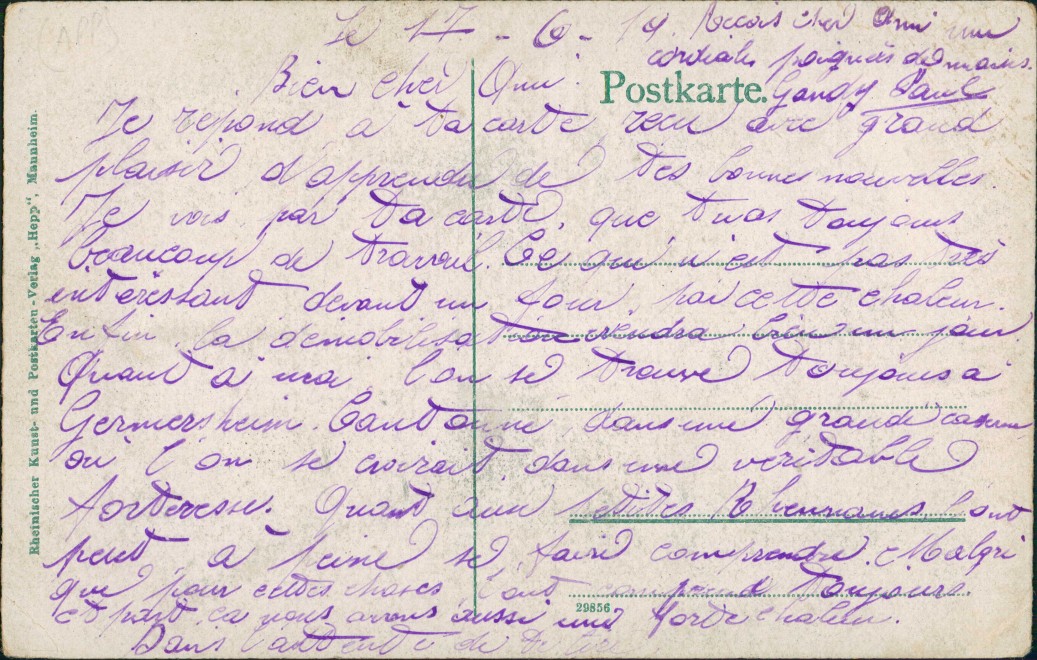 Le 17 - 6 - 19. Recois cher Ami une
cordiales poignées de mains.
Gandy Paul
Postkarte.
Bien cher Ami.
Je répond à ta carte recu avec grand
plaisir d'apprendre de tes bonnes nouvelles.
Je vois par ta carte, que tu as toujours
beaucoup de travail. Ce qui n'est pas très
intéressant devant un four, par cette chaleur.
Enfin la démobilisation viendra bien un jour.
Quant à moi, l'on se trouve toujours à
Germersheim. Cantonné dans une grande caserne
où l'on se croirait dans une véritable
forteresse. Quant aux petites Rhennanes l'ont
peut à peine se faire comprendre. Malgré
que pour cettes choses l'ont comprend toujours.
et part ça nous avons aussi une forte chaleur.
Dans l'attente de te
Rheinischer Kunst- und Postkarten-Verlag „Hepp“, Mannheim.
29856